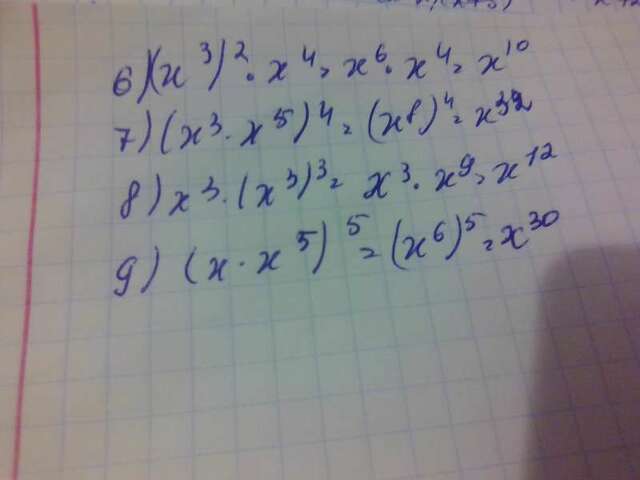 6) (x³)² · x⁴ = x⁶ · x⁴ = x¹⁰
7) (x³ · x⁵)⁴ = (x⁸)⁴ = x³²
8) x³ · (x³)³ = x³ · x⁹ = x¹²
9) (x · x⁵)⁵ = (x⁶)⁵ = x³⁰